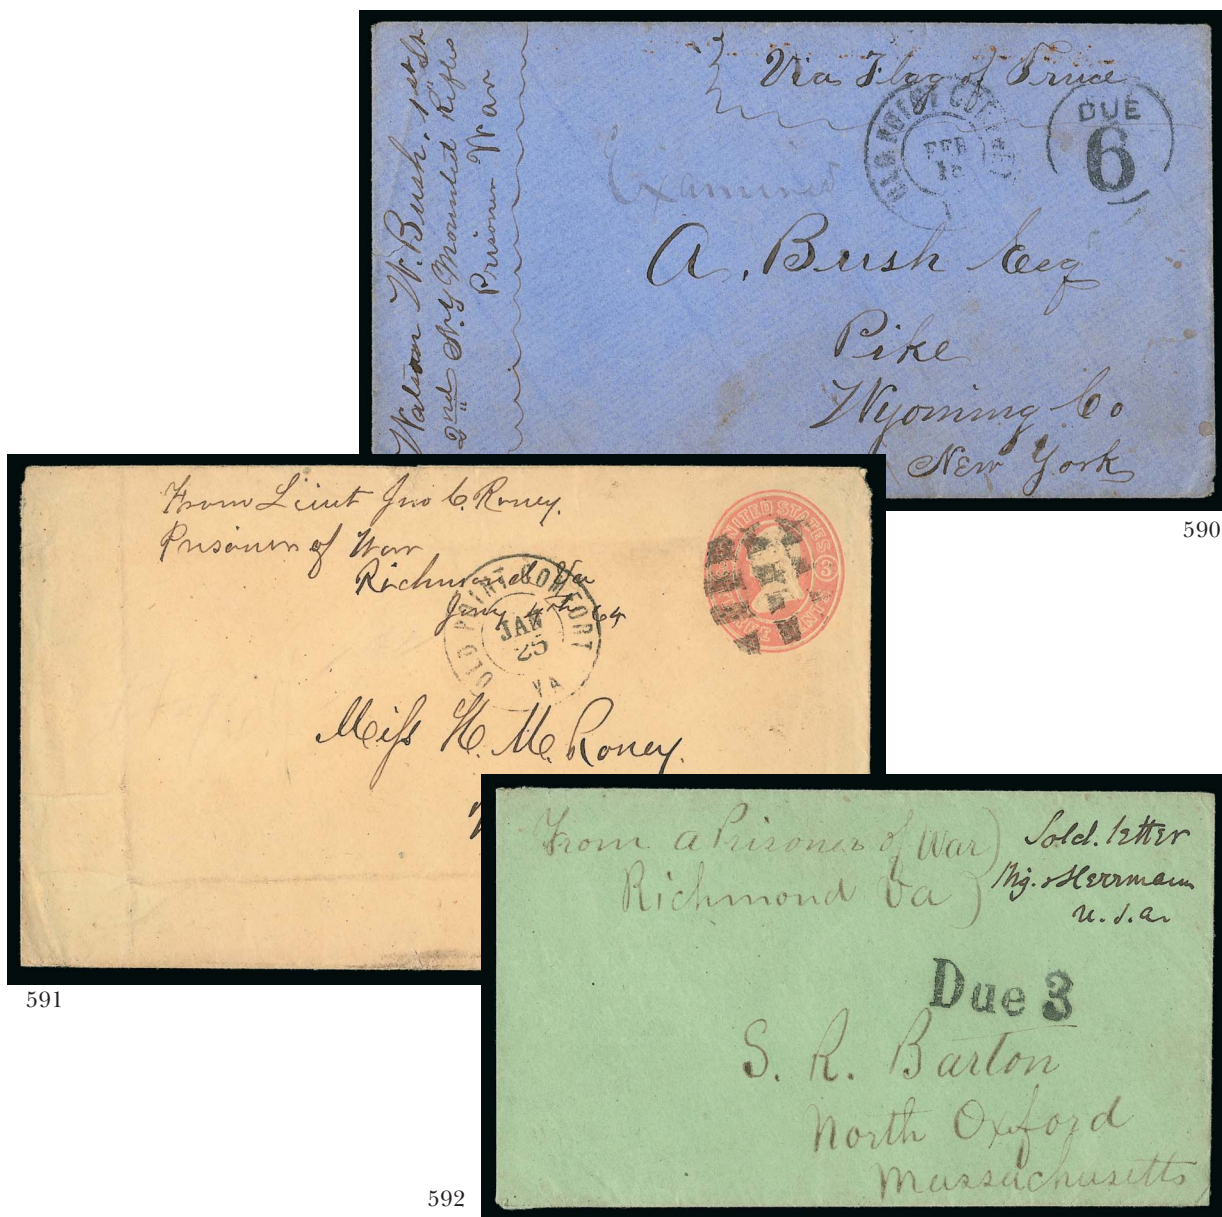 Watson W. Bush, 1st Lt
2nd N.Y. Mounted Rifles
Prisoner War
Via Flag of Truce
OLD POINT COMFORT
FEB
DUE
6
Examined
A. Bush Esq
Pike
Wyoming Co
New York
590
From Lieut Jno C. Roney.
Prisoner of War
Richmond Va
Jany 4th 64
OLD POINT COMFORT
JAN
25
VA
UNITED STATES
3
THREE CENTS
Miss H. M. Roney.
591
From a Prisoner of War
Richmond Va
Sold. letter
Mg. Herrmann
U.S.A.
Due 3
S. R. Barton
North Oxford
Massachusetts
592